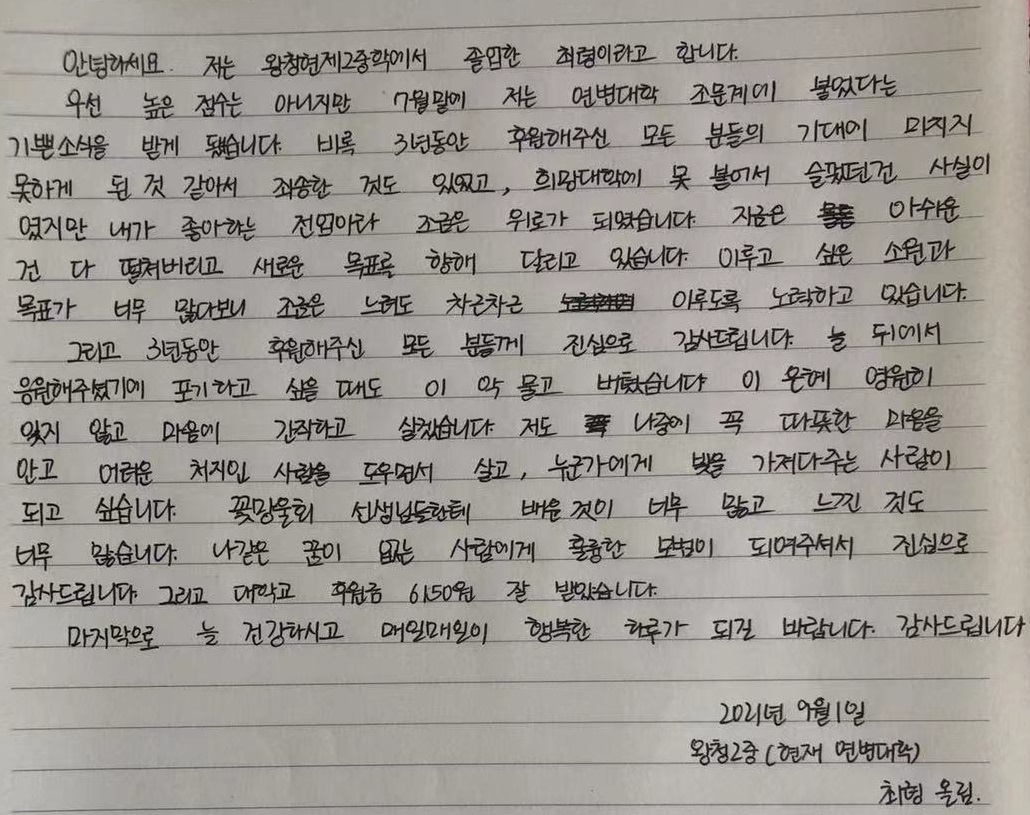 안녕하세요. 저는 왕청현제2중학에서 졸업한 최령이라고 합니다.
우선 높은 점수는 아니지만 7월말에 저는 연변대학 조문계에 붙었다는
기쁜소식을 받게 됐습니다. 비록 3년동안 후원해주신 모든 분들의 기대에 미치지
못하게 된 것 같아서 죄송한 것도 있었고, 희망대학에 못 붙어서 슬펐던건 사실이
였지만 내가 좋아하는 전업이라 조금은 위로가 되였습니다. 지금은 아쉬운
건 다 떨쳐버리고 새로운 목표를 향해 달리고 있습니다. 이루고 싶은 소원과
목표가 너무 많다보니 조금은 느려도 차근차근 이루도록 노력하고 있습니다.
그리고 3년동안 후원해주신 모든 분들께 진심으로 감사드립니다. 늘 뒤에서
응원해주셨기에 포기하고 싶을 때도 이 악 물고 버텼습니다. 이 은혜 영원히
잊지 않고 마음에 간직하고 살겠습니다. 저도 나중에 꼭 따뜻한 마음을
안고 어려운 처지인 사람을 도우면서 살고, 누군가에게 빛을 가져다주는 사람이
되고 싶습니다. 꽃망울회 선생님들한테 배운 것이 너무 많고 느낀 것도
너무 많습니다. 나같은 꿈이 없는 사람에게 훌륭한 모범이 되여주셔서 진심으로
감사드립니다. 그리고 대학교 후원금 6150원 잘 받았습니다.
마지막으로 늘 건강하시고 매일매일이 행복한 하루가 되길 바랍니다. 감사드립니다
2021년 9월 1일
왕청2중 (현재 연변대학)
올림.